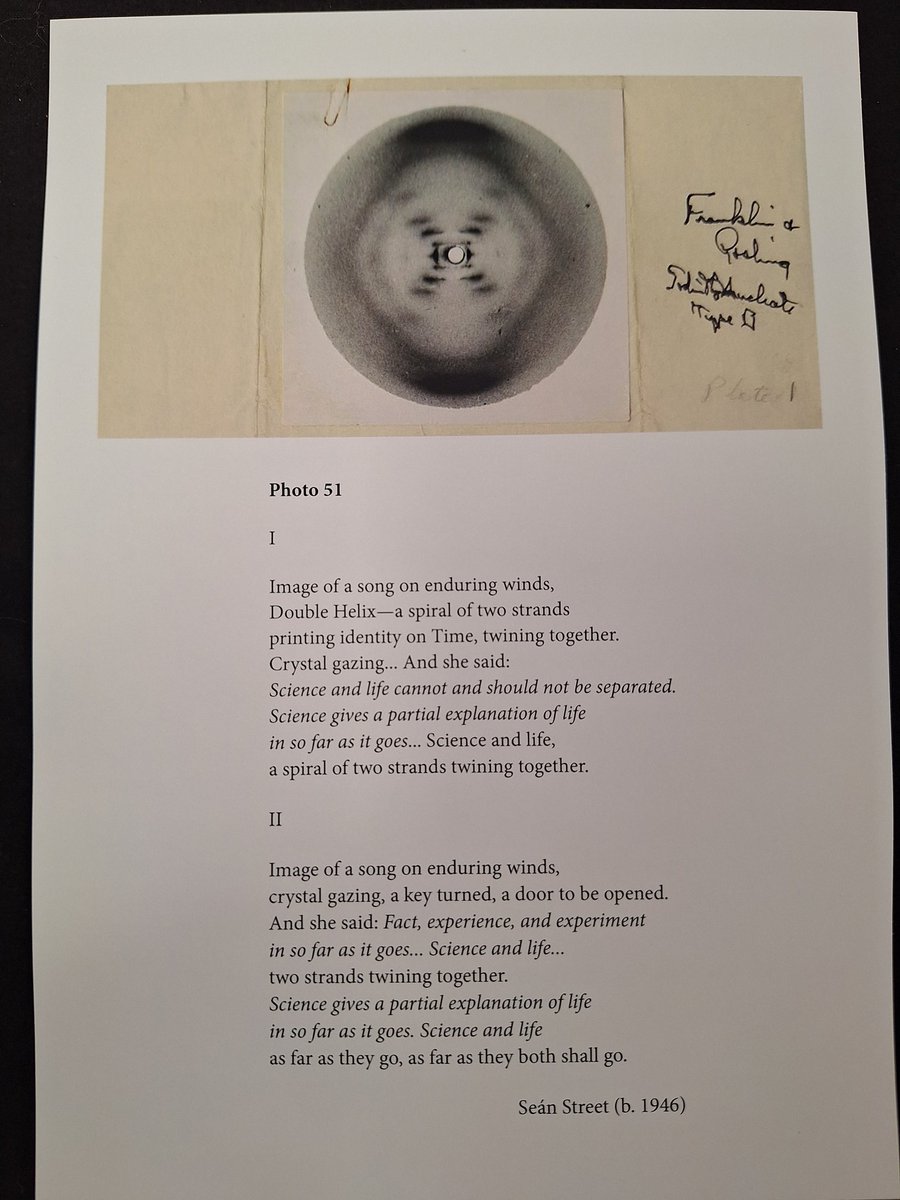 Franklin &
Gosling
Type B
Plate 1
Photo 51
I
Image of a song on enduring winds,
Double Helix—a spiral of two strands
printing identity on Time, twining together.
Crystal gazing... And she said:
Science and life cannot and should not be separated.
Science gives a partial explanation of life
in so far as it goes... Science and life,
a spiral of two strands twining together.
II
Image of a song on enduring winds,
crystal gazing, a key turned, a door to be opened.
And she said: Fact, experience, and experiment
in so far as it goes... Science and life...
two strands twining together.
Science gives a partial explanation of life
in so far as it goes. Science and life
as far as they go, as far as they both shall go.
Seán Street (b. 1946)